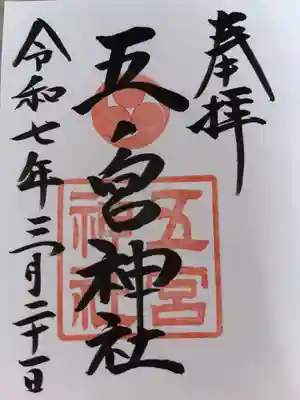 奉拝
五ノ宮神社
五宮
神社
令和七年三月二十一日